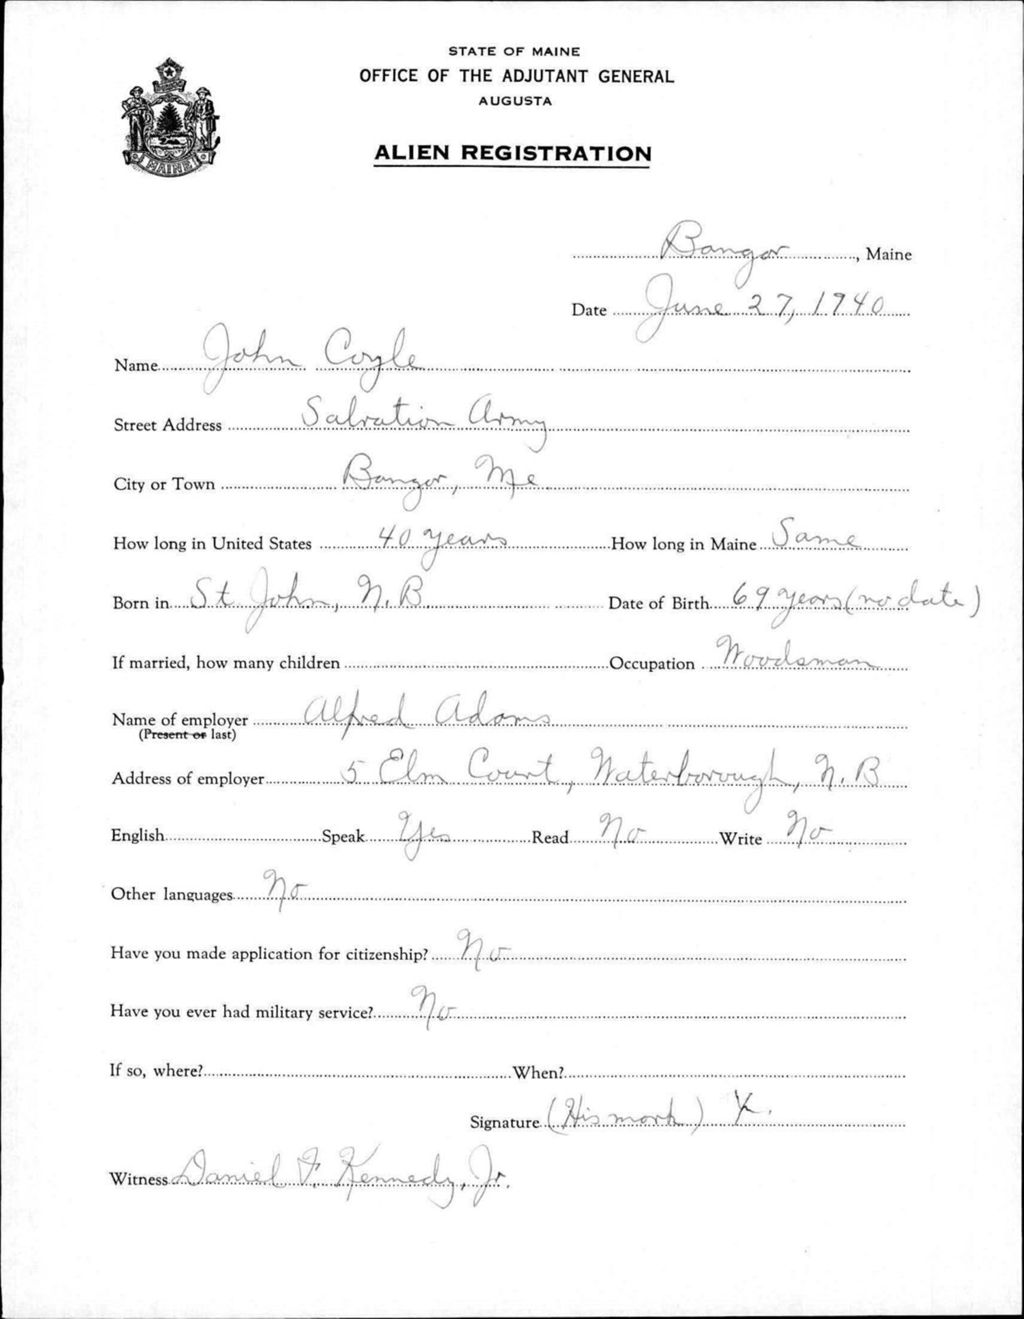 STATE OF MAINE
OFFICE OF THE ADJUTANT GENERAL
AUGUSTA
ALIEN REGISTRATION
MAINE
Bangor, Maine
Date June 27, 1940
Name John Coyle
Street Address Salvation Army
City or Town Bangor, Me
How long in United States 40 years How long in Maine Same
Born in St John, N.B Date of Birth 69 years (no date)
If married, how many children Occupation Woodsman
Name of employer Alfred Adams
(Present or last)
Address of employer 5 Elm Court, Waterborough, N.B
English Speak Yes Read No Write No
Other languages No
Have you made application for citizenship? No
Have you ever had military service? No
If so, where? When?
Signature (His mark) X.
Witness Daniel F. Kennedy, Jr.